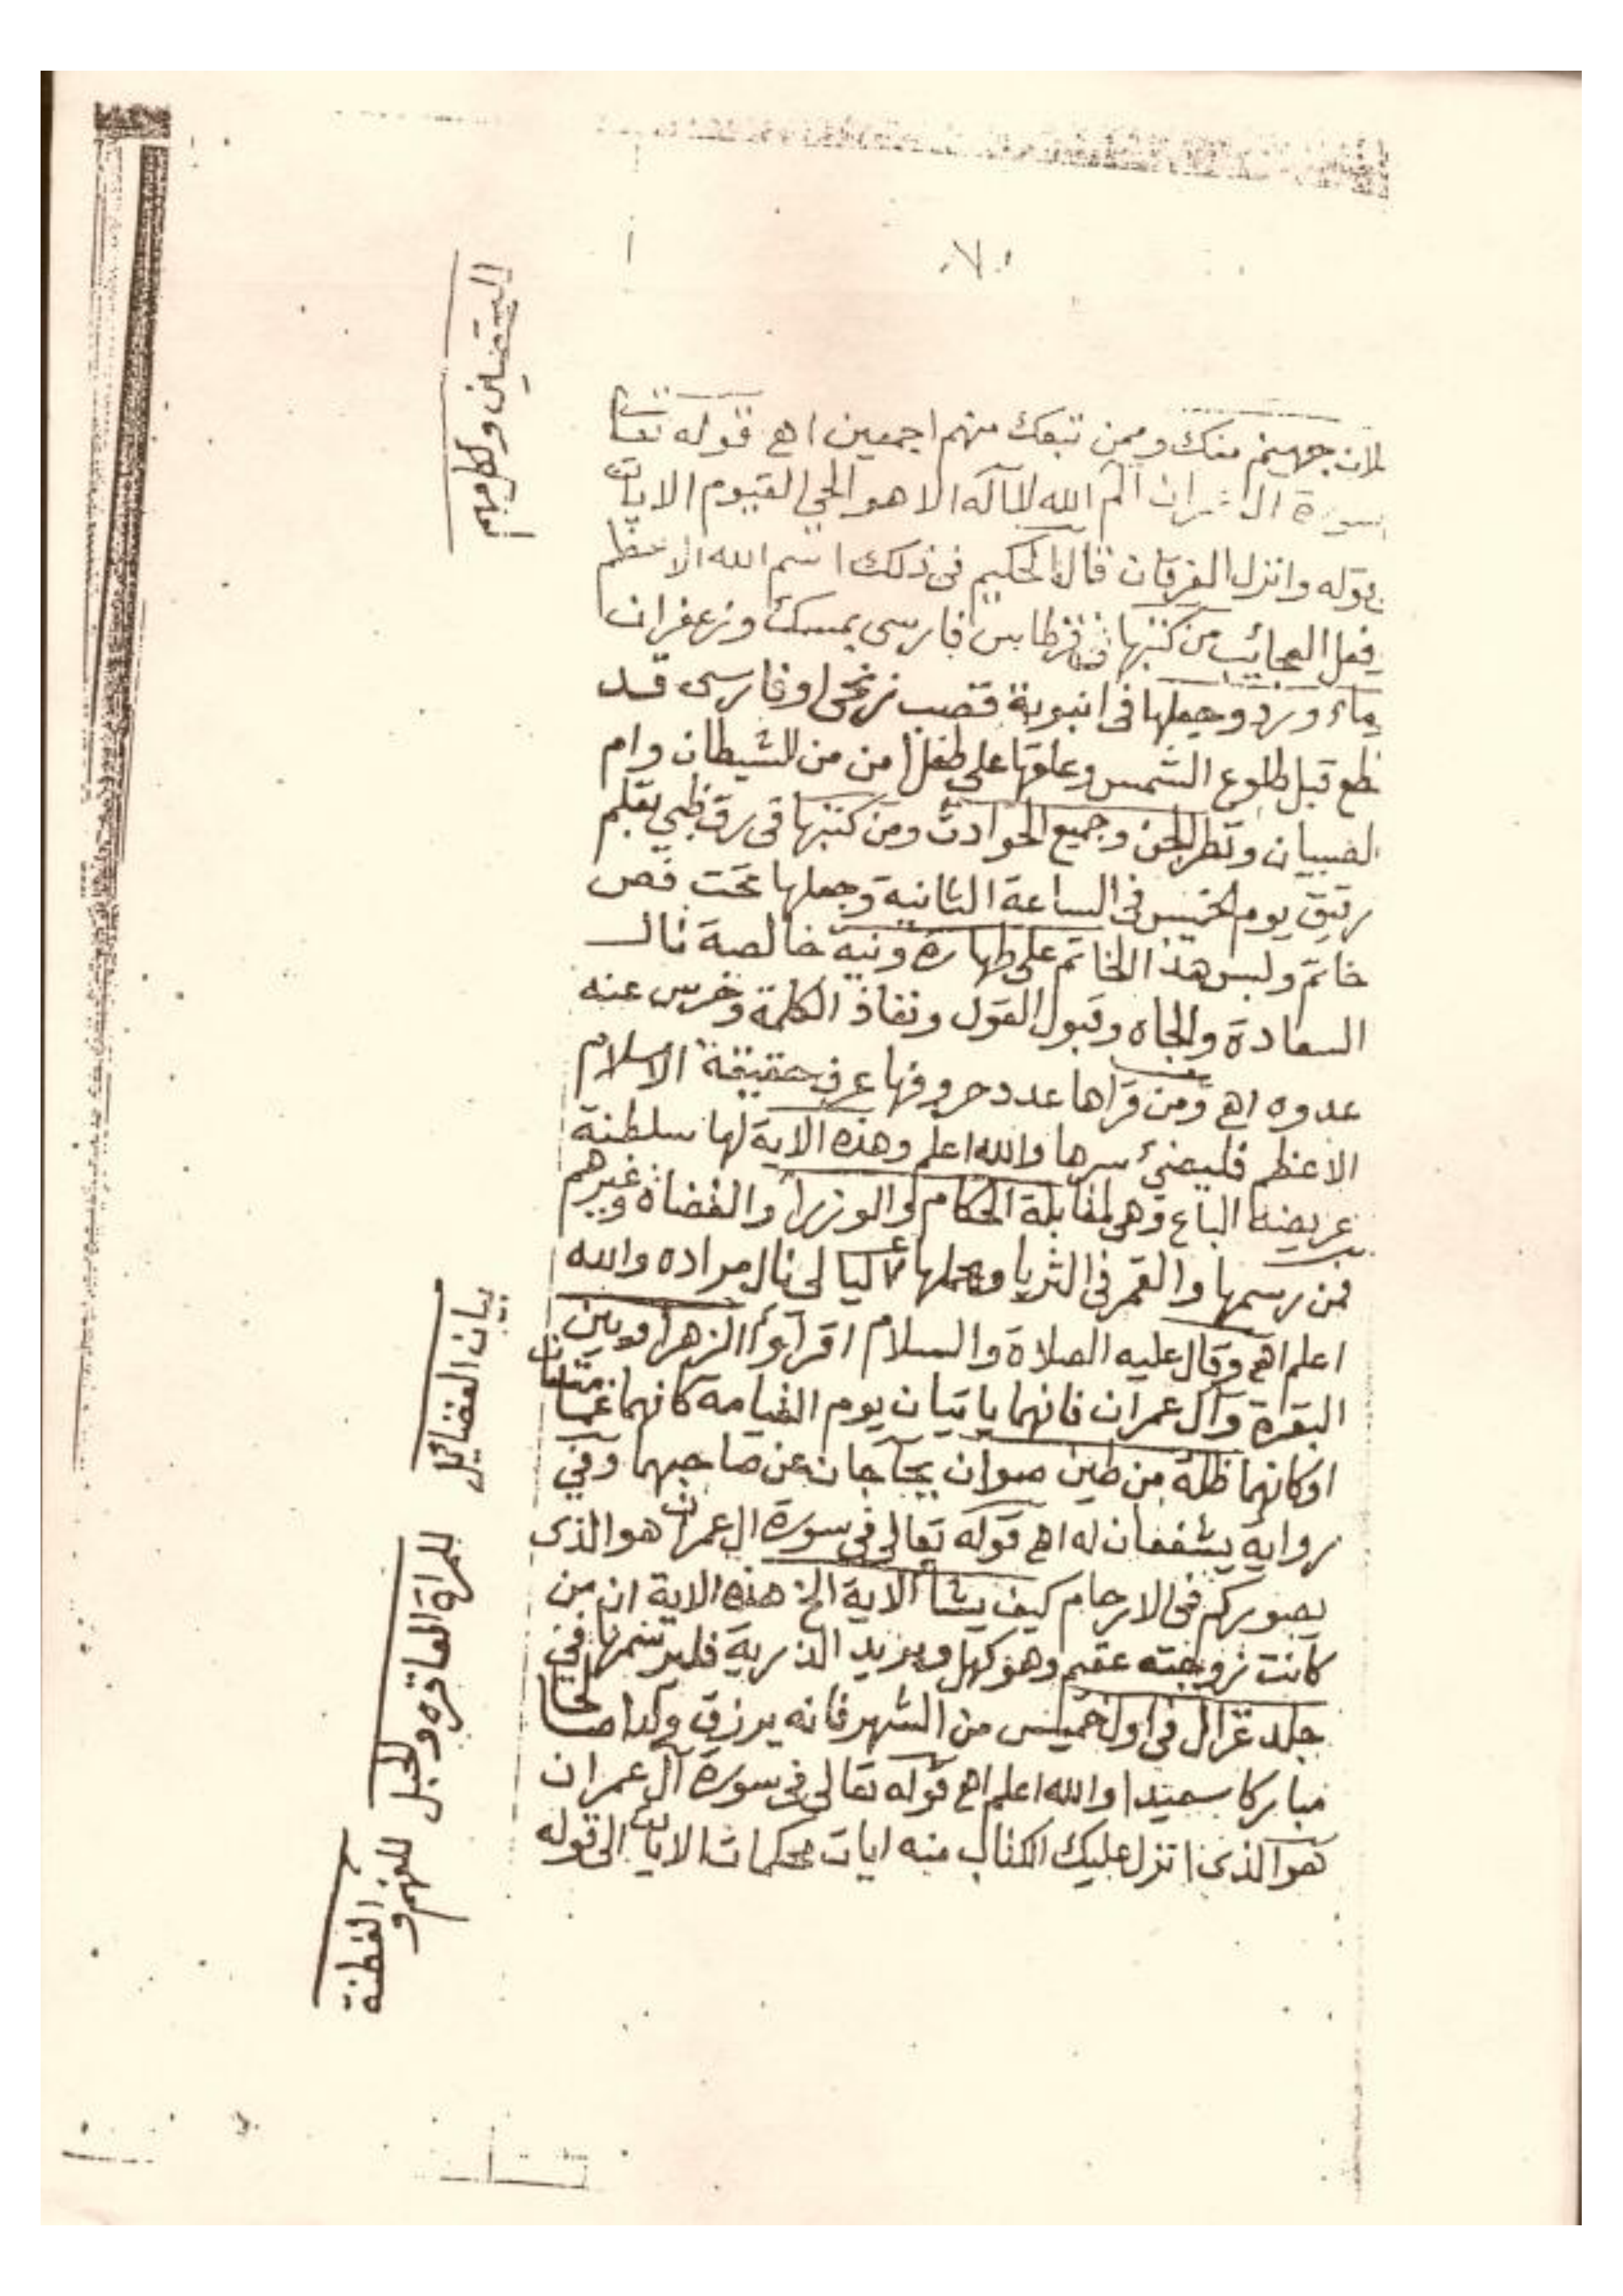 لاملان جهنم منك وممن تبعك منهم اجمعين اهـ قوله تعالى
سورة ال عمران الم الله لا اله الا هو الحي القيوم الايات
بقوله وانزل الفرقان قال الحكيم في ذلك اسم الله الاعظم
يفعل العجائب من كتبها في قرطاس فارسي بمسك وزعفران
وماء ورد وجعلها في انبوبة قصب او فارسي قد
قطع قبل طلوع الشمس وعلقها على طفل امن من الشيطان وام
الصبيان ونظر الجن وجميع الحوادث ومن كتبها في رق ظبي بقلم
رقيق يوم الخميس في الساعة الثانية وجعلها تحت فص
خاتم ولبس هذا الخاتم على طهارة ونية خالصة نال
السعادة والجاه وقبول القول ونفاذ الكلمة وخرس عنه
عدوه اهـ ومن قراها عدد حروفها عرف حقيقة الاسلام
الاعظم سرها والله اعلم وهذه الاية لها سلطنة
عريضة الباع وهي لمقابلة الحكام والوزرا والقضاة وغيرهم
فمن رسمها والقمر في الثريا وحملها ليالي نال مراده والله
اعلم اهـ وقال عليه الصلاة والسلام اقراوا الزهراوين
البقرة وآل عمران فانهما ياتيان يوم القيامة كانهما غمامتان
اوكانهما ظلة من طين صوان يحاجان عن صاحبهما وفي
رواية يشفعان له اهـ قوله تعالى في سورة ال عمران هو الذى
يصوركم في الارحام كيف يشا الاية الخ هذه الاية ان من
كانت زوجته عقيم وهو كهل ويريد الذرية فليرسمها في
جلد غزال في اول خميس من الشهر فانه يرزق ولدا صالحا
مباركا سعيدا والله اعلم اهـ قوله تعالى في سورة آل عمران
هو الذى انزل عليك الكتاب منه ايات محكمات الايات الى قوله
بيان الفضائل
للمراة العاقره والحبل
للفهم و
الفطنة